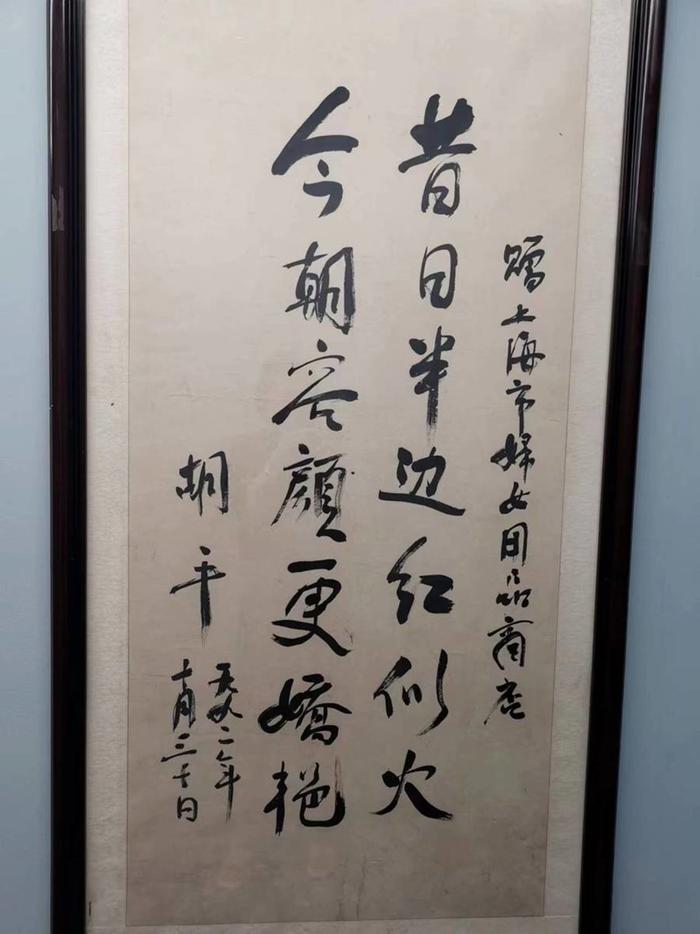 贈上海市婦女用品商店
昔日半边红似火
今朝容顔更嬌艳
胡平
一九九二年
十月三十日